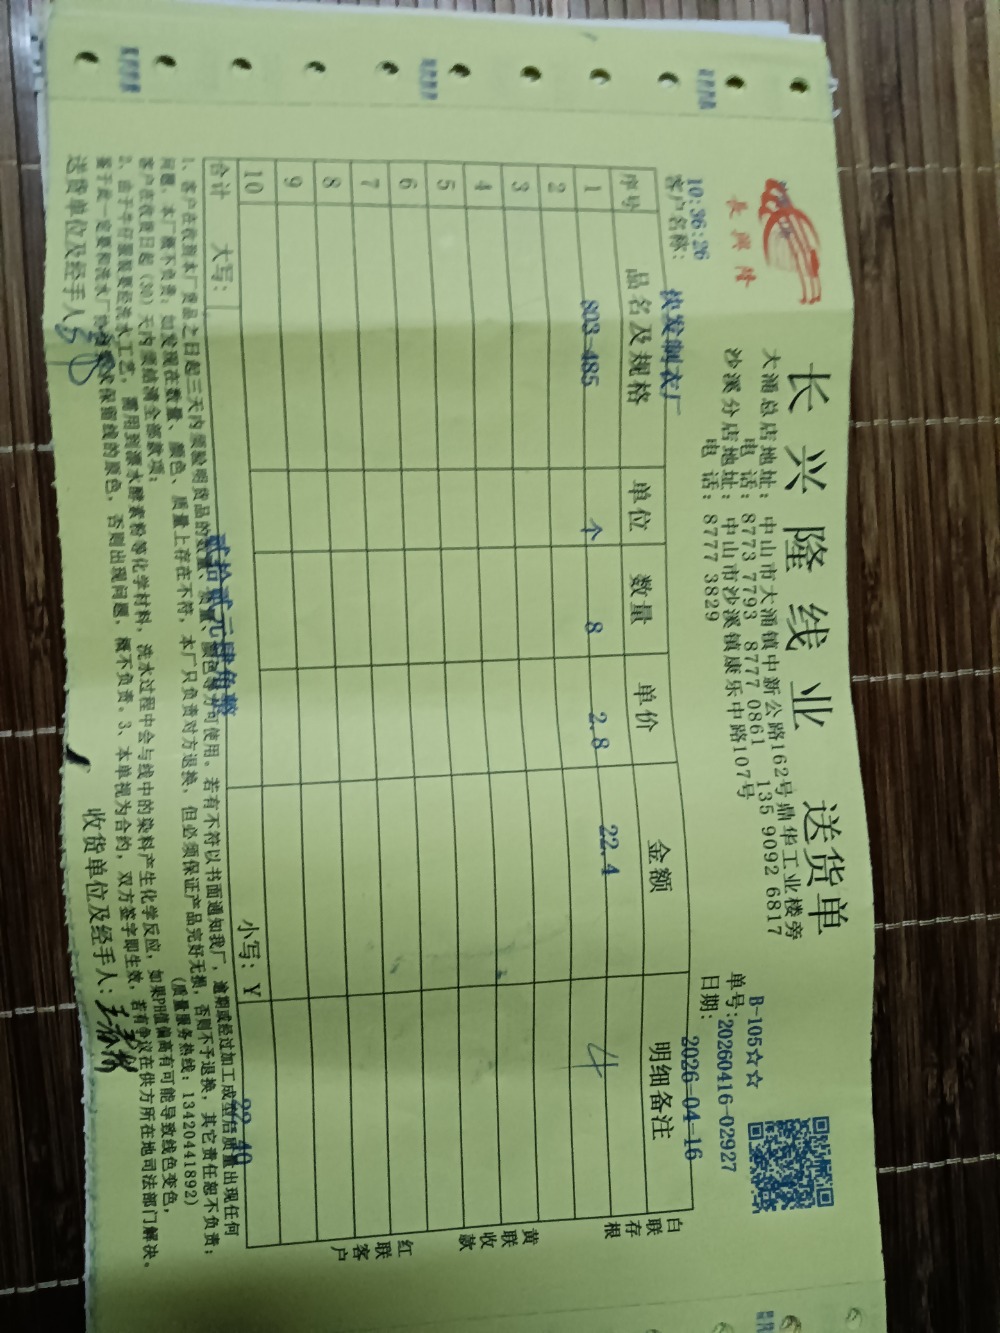 長興隆
长兴隆线业 送货单
大涌总店地址：中山市大涌镇中新公路162号鼎华工业楼旁
电话：8773 7793 8777 0861 135 9092 6817
沙溪分店地址：中山市沙溪镇康乐中路107号
电话：8777 3829
B-105☆☆
单号:20260416-02927
日期：2026-04-16
10:36:26
客户名称：快发制衣厂
序号 品名及规格 单位 数量 单价 金额 明细备注
1 803-485 个 8 2.8 22.4 4
2
3
4
5
6
7
8
9
10
合计 大写：贰拾贰元肆角整 小写：¥ 22.40
白联存根
黄联收款
红联客户
1、客户在收到本厂货品之日起三天内须验明货品的数量、质量、颜色等方可使用。若有不符以书面通知我厂，逾期或经过加工成型后质量出现任何
问题，本厂概不负责；如发现在数量、颜色、质量上存在不符，本厂只负责对方退换，但必须保证产品完好无损，否则不予退换，其它责任恕不负责；
客户在收货日起(30)天内须结清全部款项； (质量服务热线：13420441892)
2、由于牛仔服装要经洗水工艺，需用到漂水酵素粉等化学材料，洗水过程中会与线中的染料产生化学反应，如果PH值偏高有可能导致线色变色，
鉴于此一定要和洗水厂 保留线的原色，否则出现问题，概不负责。3、本单视为合约，双方签字即生效，若有争议在供方所在地司法部门解决。
送货单位及经手人： 收货单位及经手人：